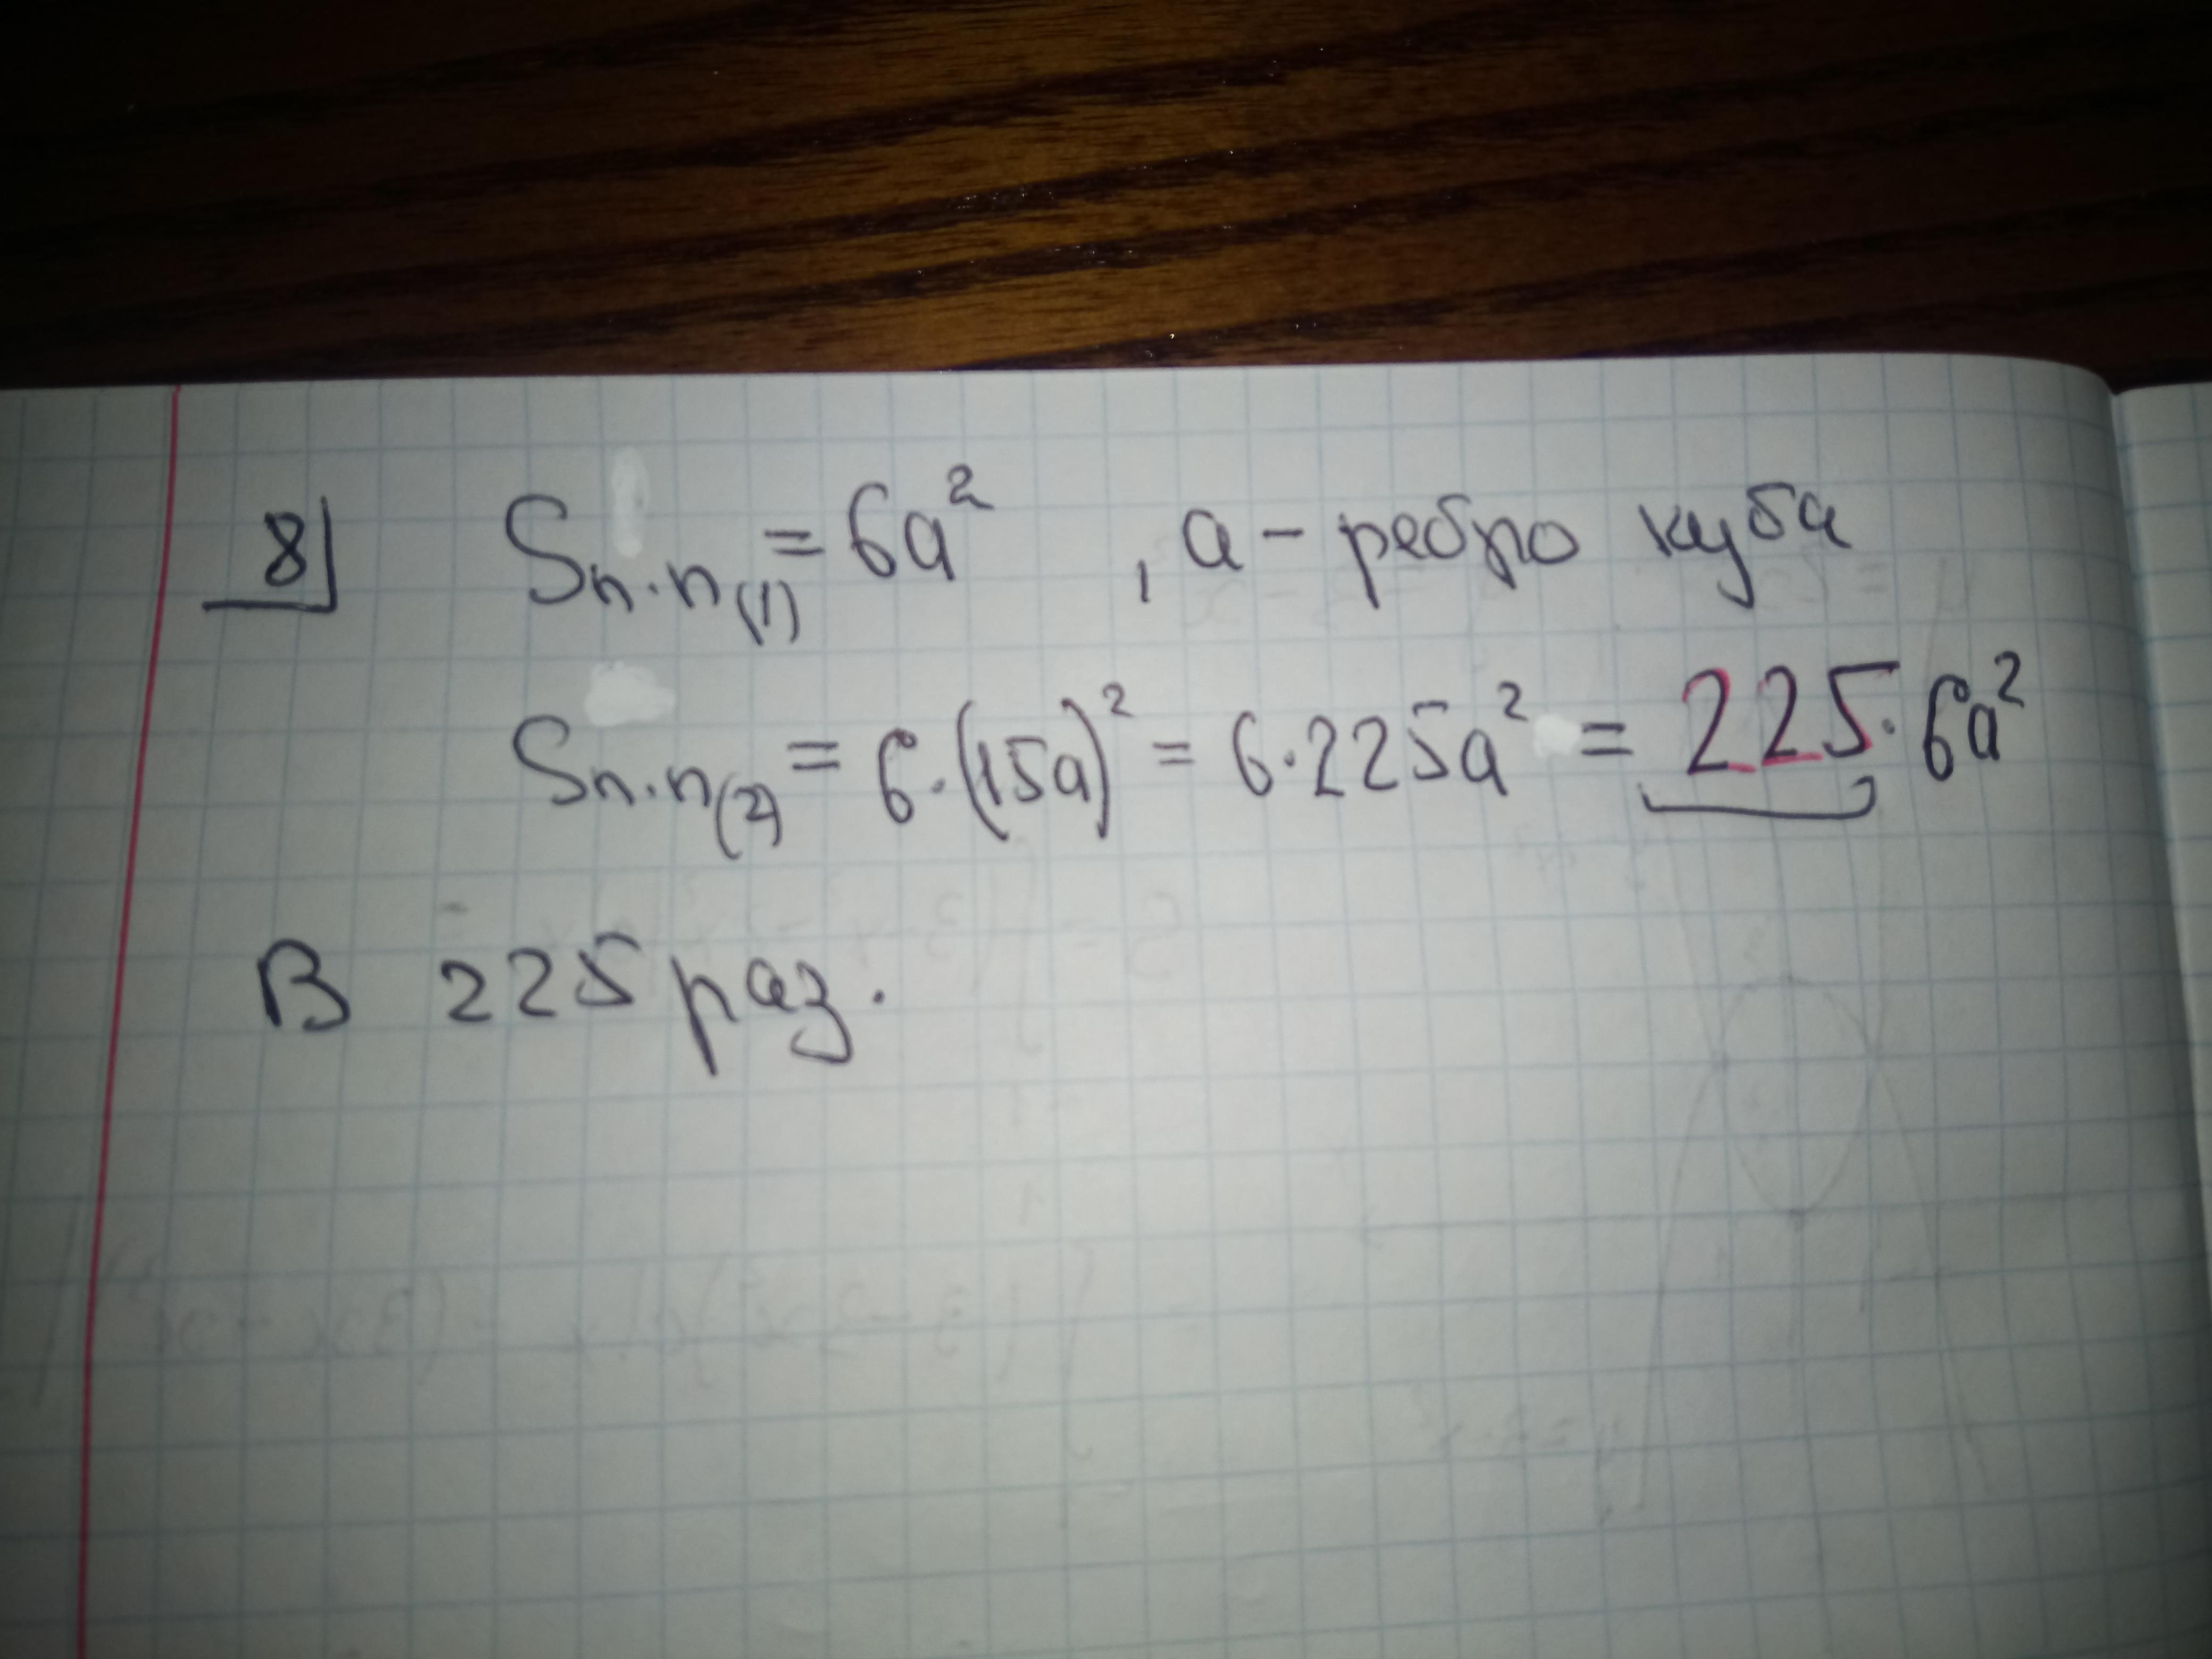 8] Sп.п(1) = 6a² , a - ребро куба
Sп.п(2) = 6·(15a)² = 6·225a² = 225·6a²
В 225 раз.